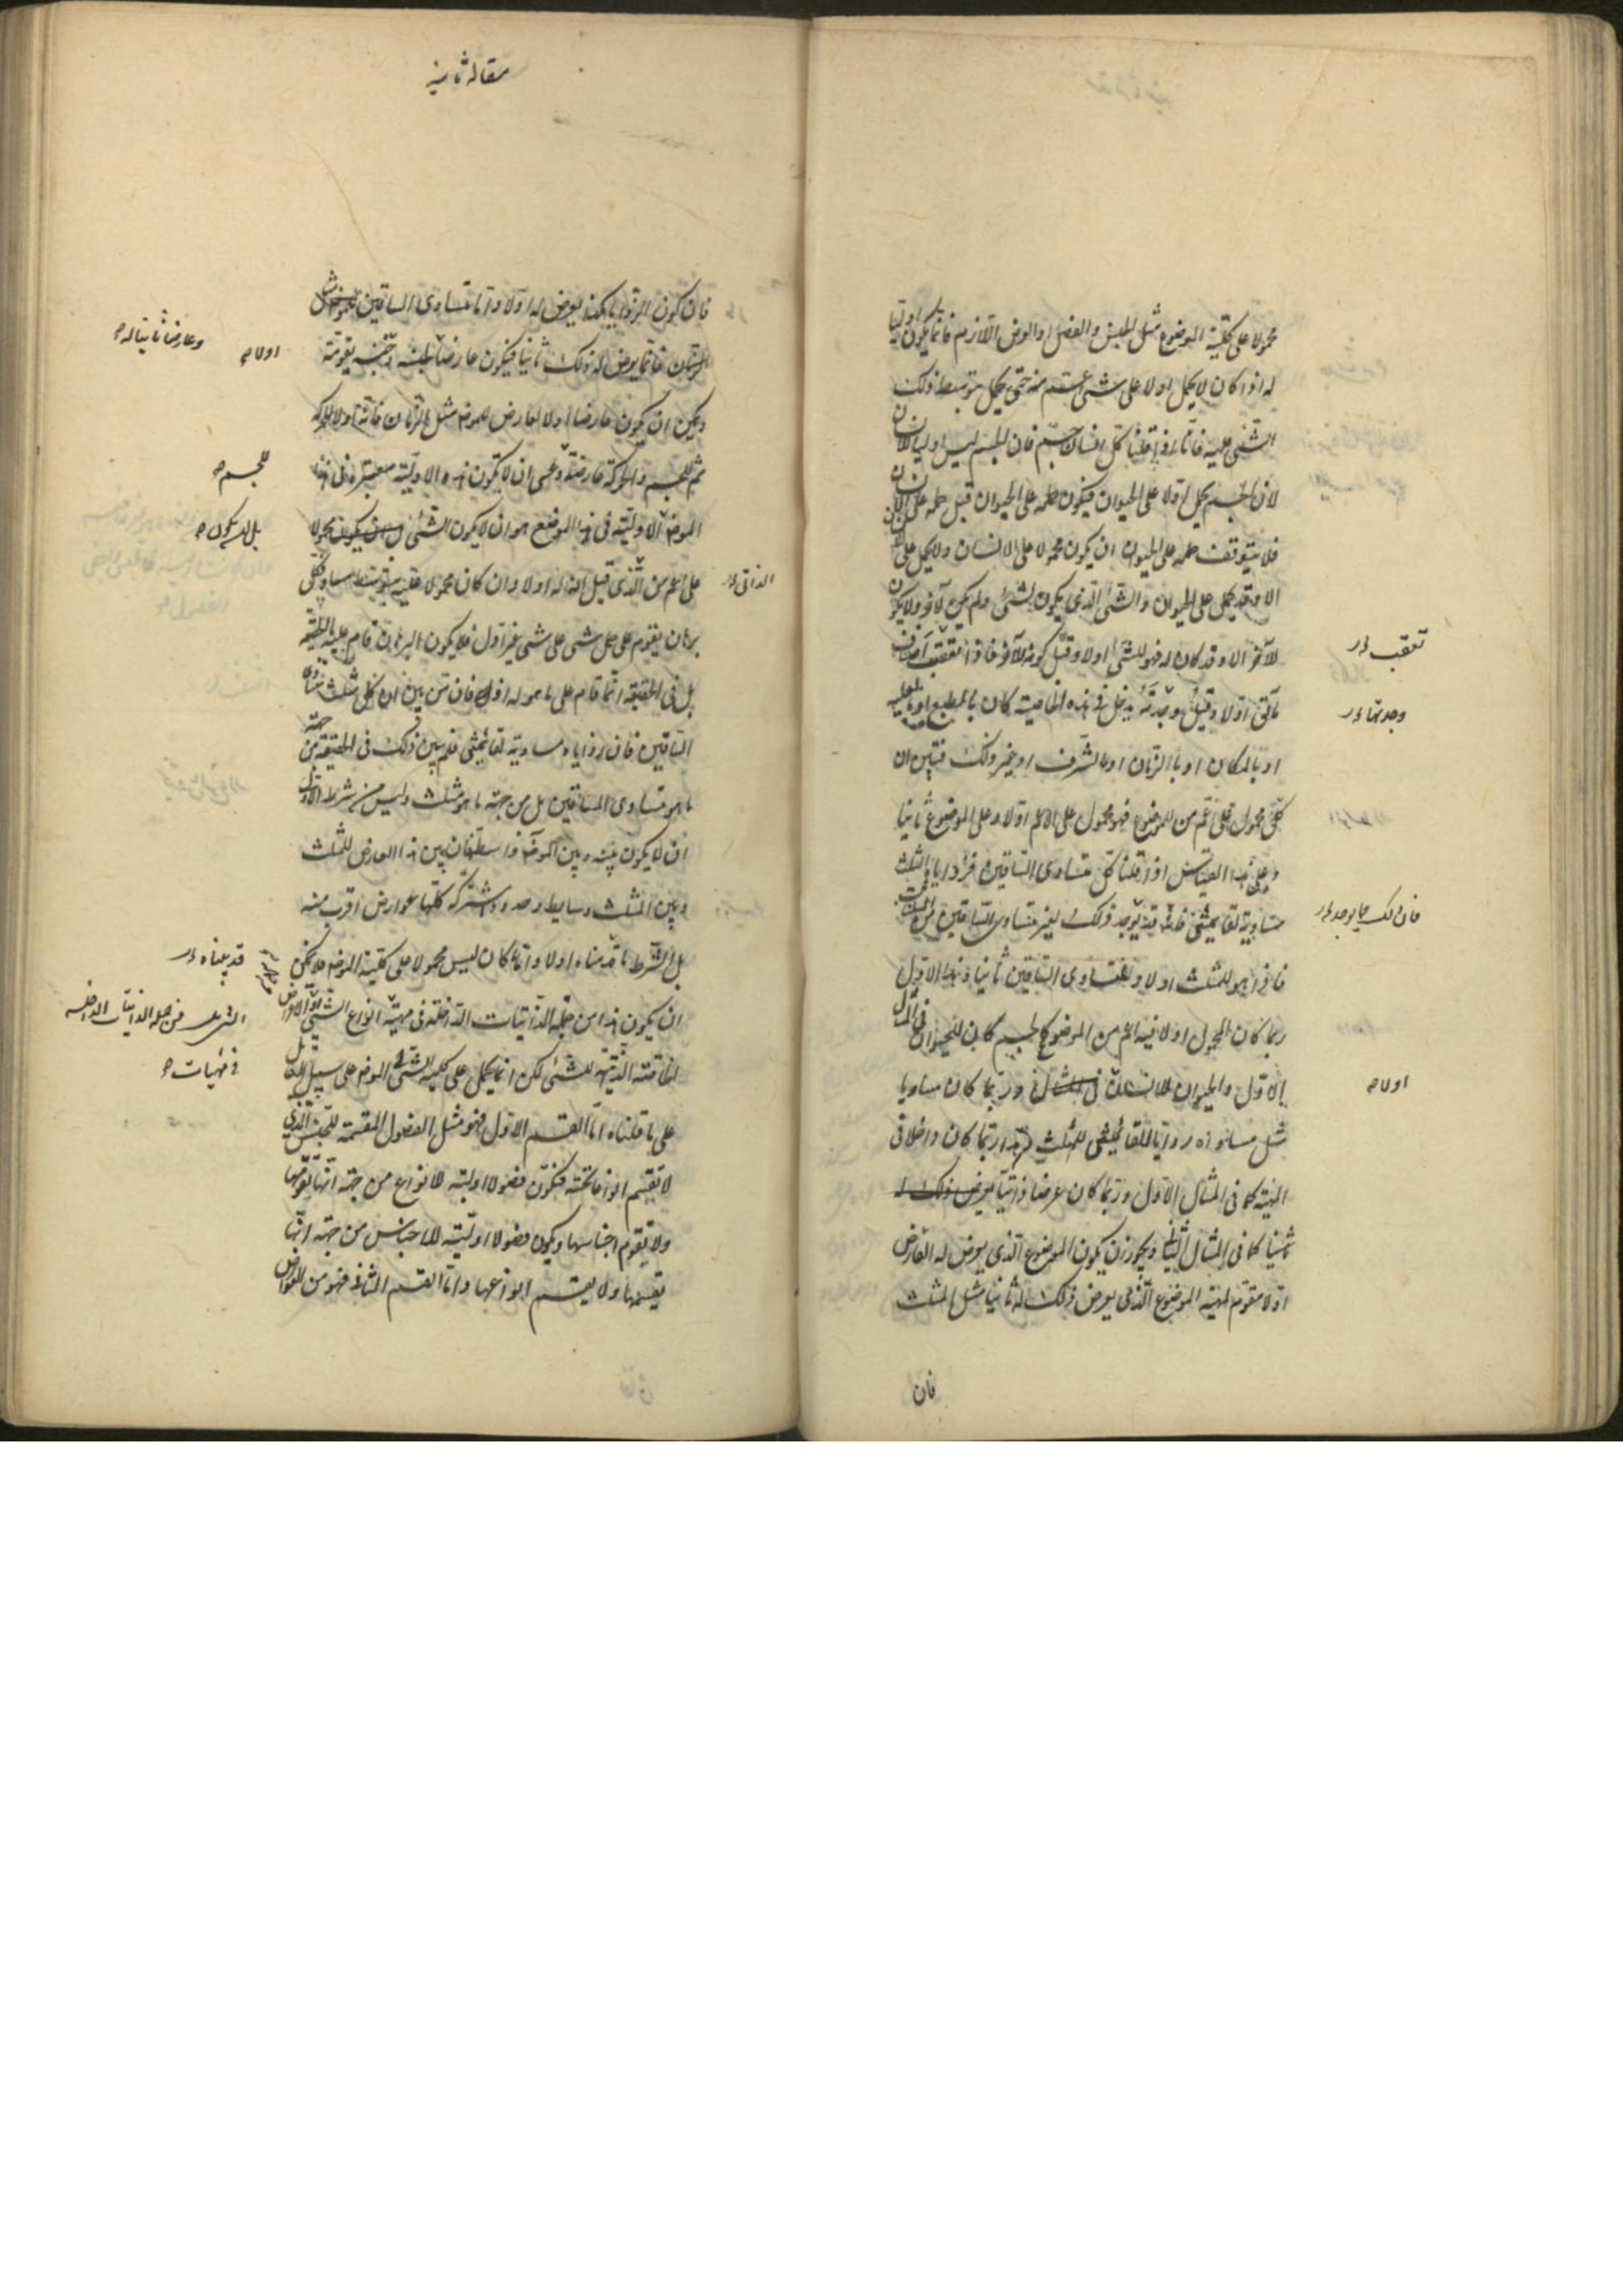 محمولا على كلية الموضوع مثل الجنس والفصل والعرض اللازم فانما يكون اوليا
له اذا كان لا يحمل اولا على شىء اعم منه حتى يحمل بتوسط ذلك
الشىء عليه فانا اذا قلنا كل انسان جسم فان الجسم ليس اوليا للانسان
لان الجسم يحمل اولا على الحيوان فيكون حمله على الحيوان قبل حمله على الانسان
فلا يتوقف حمله على الحيوان ان يكون محمولا على الانسان ولا يحمل على
الا وقد يحمل على الحيوان والشىء الذى يكون لشىء ولم يكن لآخر ولا يكون
للآخر الا وقد كان له فهو للشىء اولا وقبل كونه للآخر فاذا تعقبت اصناف
ما نحن اولا وقبل وجدته يدخل فى هذه الخاصية كان بالطبع او بالعلية
او بالمكان او بالزمان او بالشرف او غير ذلك فتبين ان
كل محمول على اعم من الموضوع فهو محمول على الاعم اولا وعلى الموضوع ثانيا
وعلى هذا القياس اذا قلنا كل متساوى الساقين فزوايا الثلث
متساوية لقائمتين فانه قد يوجد ذلك لغير متساوى الساقين من المثلث
فاذا هو للمثلث اولا ولمتساوى الساقين ثانيا وهذا الاول
ربما كان المحمول اولا فيه اعم من الموضوع كالجسم كان للحيوان فى المثال
الاول والحيوان للانسان فى المثال وربما كان مساويا
مثل مساواه زوايا لقائمتين للمثلث وهذا ربما كان داخلا فى
المهية كما فى المثال الاول وربما كان عرضا ذاتيا يعرض ذلك له
ثانيا كما فى المثال الثانى ويجوز ان يكون الموضوع الذى يعرض له العارض
اولا مقوم لمهية الموضوع الذى يعرض ذلك له ثانيا مثل المثلث
تعقب
وجدتها
فان ذلك مما يوجد
اولا
فان
مقاله ثانيه
فان كون الزوايا كذا يعرض له اولا واما متساوى الساقين
فانما يعرض له ذلك ثانيا فيكون عارضا لجنسه وجنسه يقومه
ويمكن ان يكون عارضا اولا لعارض للموضوع مثل الزمان فانه اولا للحركه
ثم للجسم والحركة عارضة وعسى ان لا تكون هذه الاولية معتبرة فى هذا
الموضع الاولية فى هذا الموضع هو ان لا يكون الشىء محمولا
على اعم من الذى قيل انه له اولا وان كان محمولا عليه بتوسط مساو فكل
برهان يقوم على حمل شىء على شىء غير اول فلا يكون البرهان قام عليه بالحقيقه
بل فى الحقيقة انما قام على ما هو له اول فان من بين ان كل مثلث متساوى
الساقين فان زواياه مساوية لقائمتين فلم يبين ذلك فى الحقيقة من جهة
ما هو متساوى الساقين بل من جهة ما هو مثلث وليس من شرط الاول
ان لا يكون بينه وبين الموضوع واسطة فان بين هذا العارض للمثلث
وبين المثلث وسايط وحدود مشتركة كلها عوارض اقرب منه
بل الشرط ما قدمناه اولا واما ما كان ليس محمولا على كلية الموضوع فلا يمكن
ان يكون هذا من جملة الذاتيات الداخلة فى مهية انواع الشىء او الاعراض
الخاصة الذاتية للشىء لكن انما يحمل على كلية الشىء الموضوع على سبيل التقابل
على ما قلناه اما القسم الاول فهو مثل الفصول المقسمة للجنس الذى
لا تقسم انواعا تحته فتكون فصولا اولية للانواع من جهة انها تقومها
ولا تقوم اجناسها ويكون فصولا اولية للاجناس من جهة انها
تقسمها ولا تقسم انواعها واما القسم الثانى فهو من العوارض
وعارضا ثانيا له
اولا
للجسم
بل ان يكون
الذاتى
قد بيناه
من جملة الذاتيات الداخلة
فى مهيات